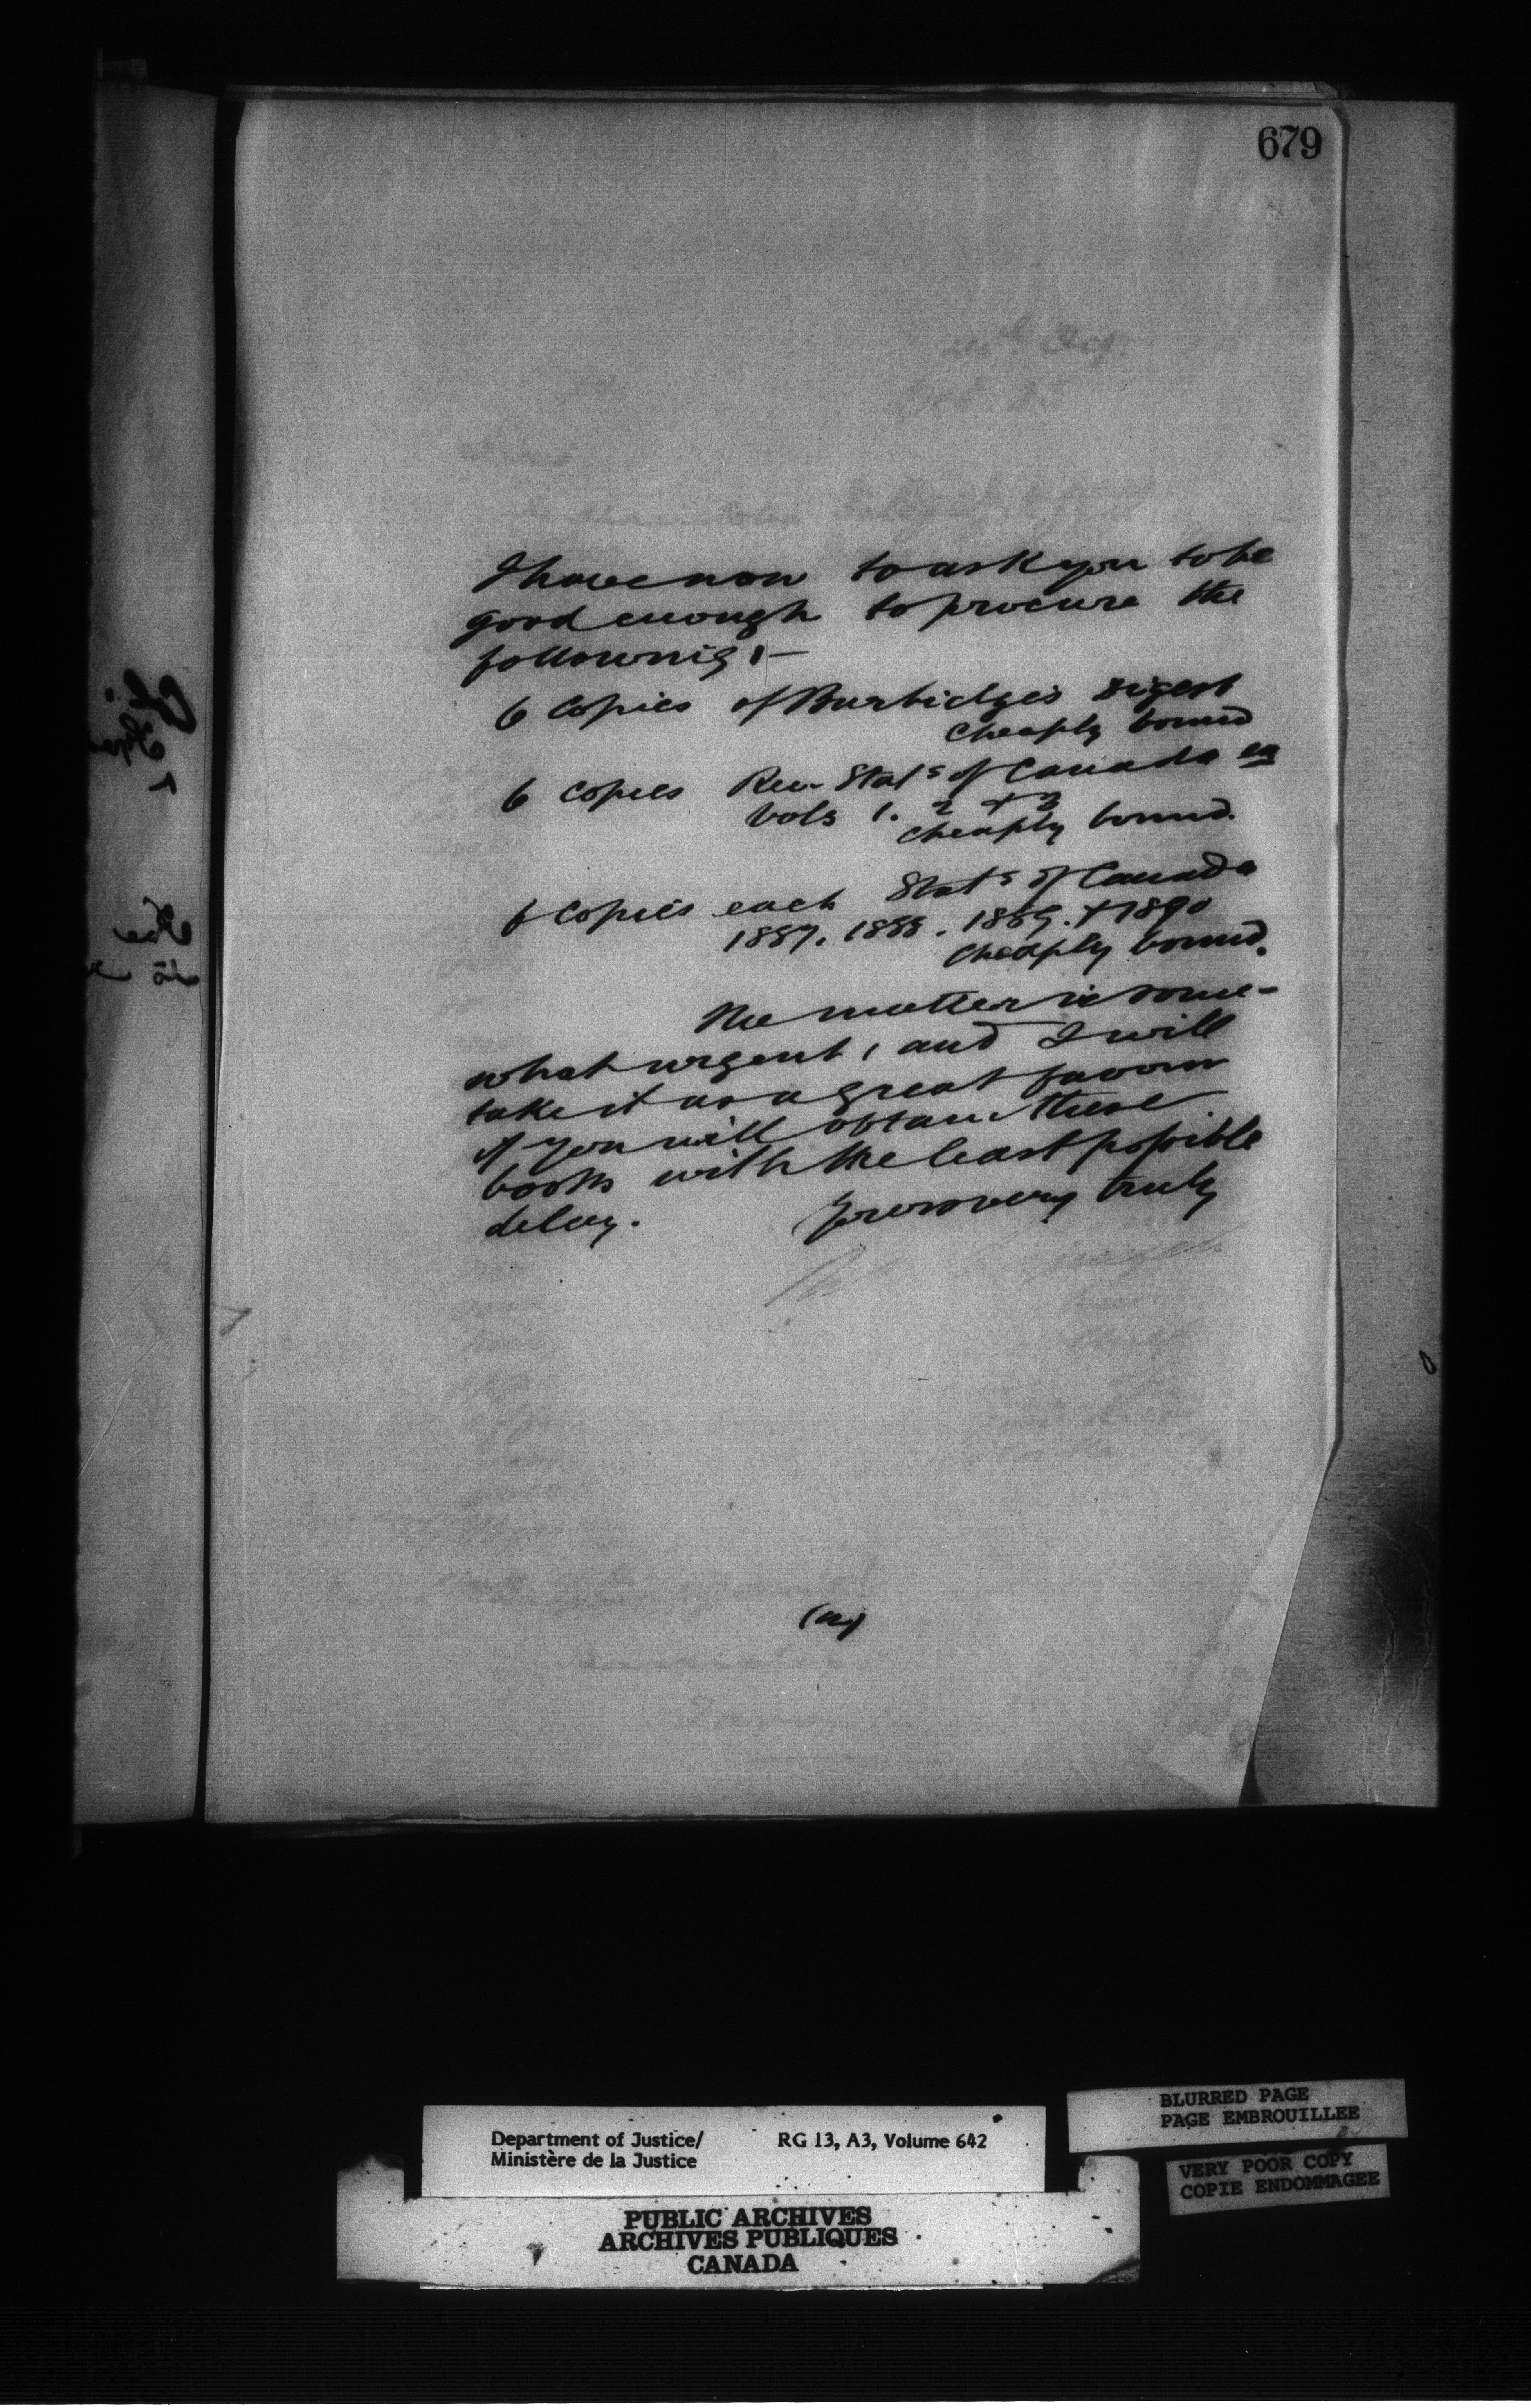 679
I have now to ask you to be
good enough to procure the
following :—
6 Copies of Burbidge's Digest
cheaply bound
6 Copies Rev. Stats of Canada in
Vols 1. 2 + 3
cheaply bound.
6 Copies each Stats of Canada
1887. 1888. 1889. + 1890
cheaply bound.
The matter is some-
what urgent, and I will
take it as a great favour
if you will obtain these
books with the least possible
delay. Yours very truly
Department of Justice/ RG 13, A3, Volume 642
Ministère de la Justice
PUBLIC ARCHIVES
ARCHIVES PUBLIQUES
CANADA
BLURRED PAGE
PAGE EMBROUILLEE
VERY POOR COPY
COPIE ENDOMMAGEE